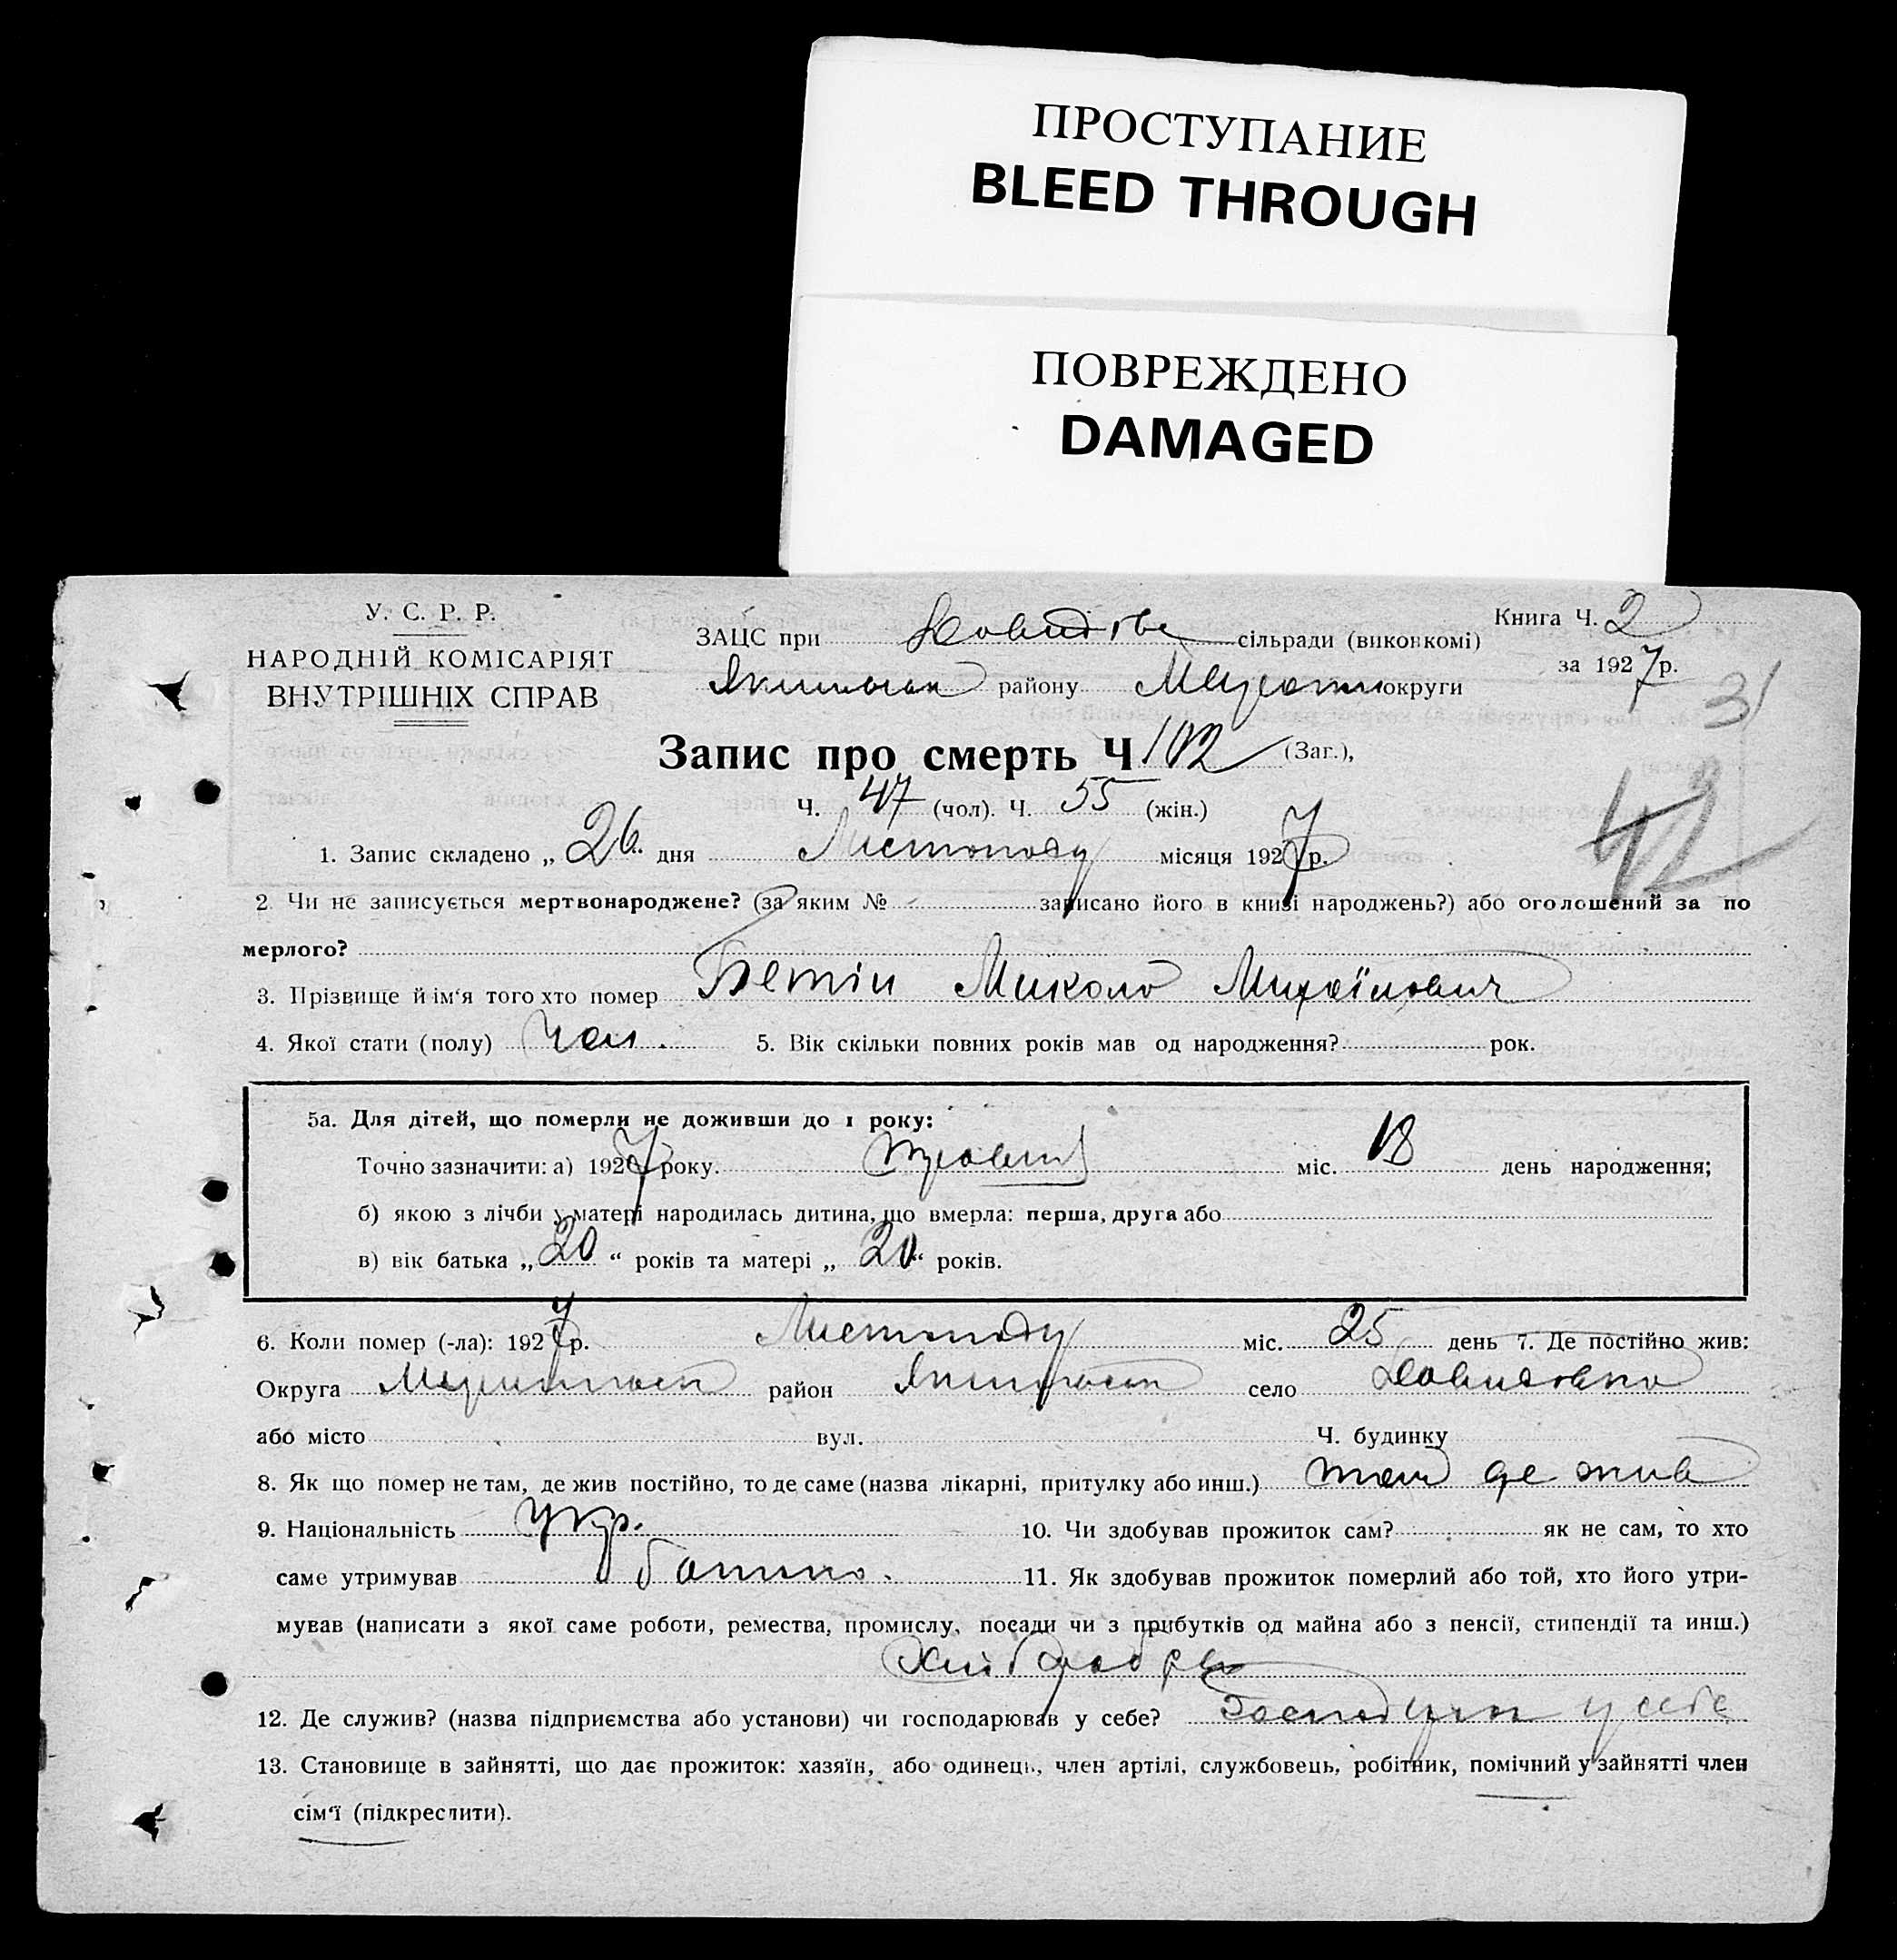 ПРОСТУПАНИЕ
BLEED THROUGH
ПОВРЕЖДЕНО
DAMAGED
У. С. Р. Р.
НАРОДНІЙ КОМІСАРІЯТ
ВНУТРІШНІХ СПРАВ
ЗАЦС при сільради (виконкомі)
району округи
Книга Ч. 2
за 1927 р.
31
Запис про смерть Ч 102 (Заг.),
Ч. 47 (чол). Ч. 55 (жін.)
42
1. Запис складено „ 26 дня Листопаду місяця 1927 р.
2 Чи не записується мертвонароджене? (за яким № записано його в книзі народжень?) або оголошений за по
мерлого?
3. Прізвище й ім'я того хто помер Бетін Микола Михаїлович
4. Якої стати (полу) чол. 5. Вік скільки повних років мав од народження? рок.
5а. Для дітей, що померли не доживши до 1 року:
Точно зазначити: а) 1927 року. міс. 18 день народження;
б) якою з лічби у матері народилась дитина, що вмерла: перша, друга або
в) вік батька „ 20 “ років та матері „ 20 “ років.
6. Коли помер (-ла): 1927 р. Листопаду міс. 25 день 7. Де постійно жив:
Округа район село Давидовка
або місто вул. Ч. будинку
8. Як що помер не там, де жив постійно, то де саме (назва лікарні, притулку або инш.) там де жив
9. Національність укр. 10. Чи здобував прожиток сам? як не сам, то хто
саме утримував батько. 11. Як здобував прожиток померлий або той, хто його утри-
мував (написати з якої саме роботи, ремества, промислу, посади чи з прибутків од майна або з пенсії, стипендії та инш.)
12. Де служив? (назва підприємства або установи) чи господарював у себе? у себе
13. Становище в зайнятті, що дає прожиток: хазяїн, або одинець, член артілі, службовець, робітник, помічний у зайнятті член
сім'ї (підкреслити).